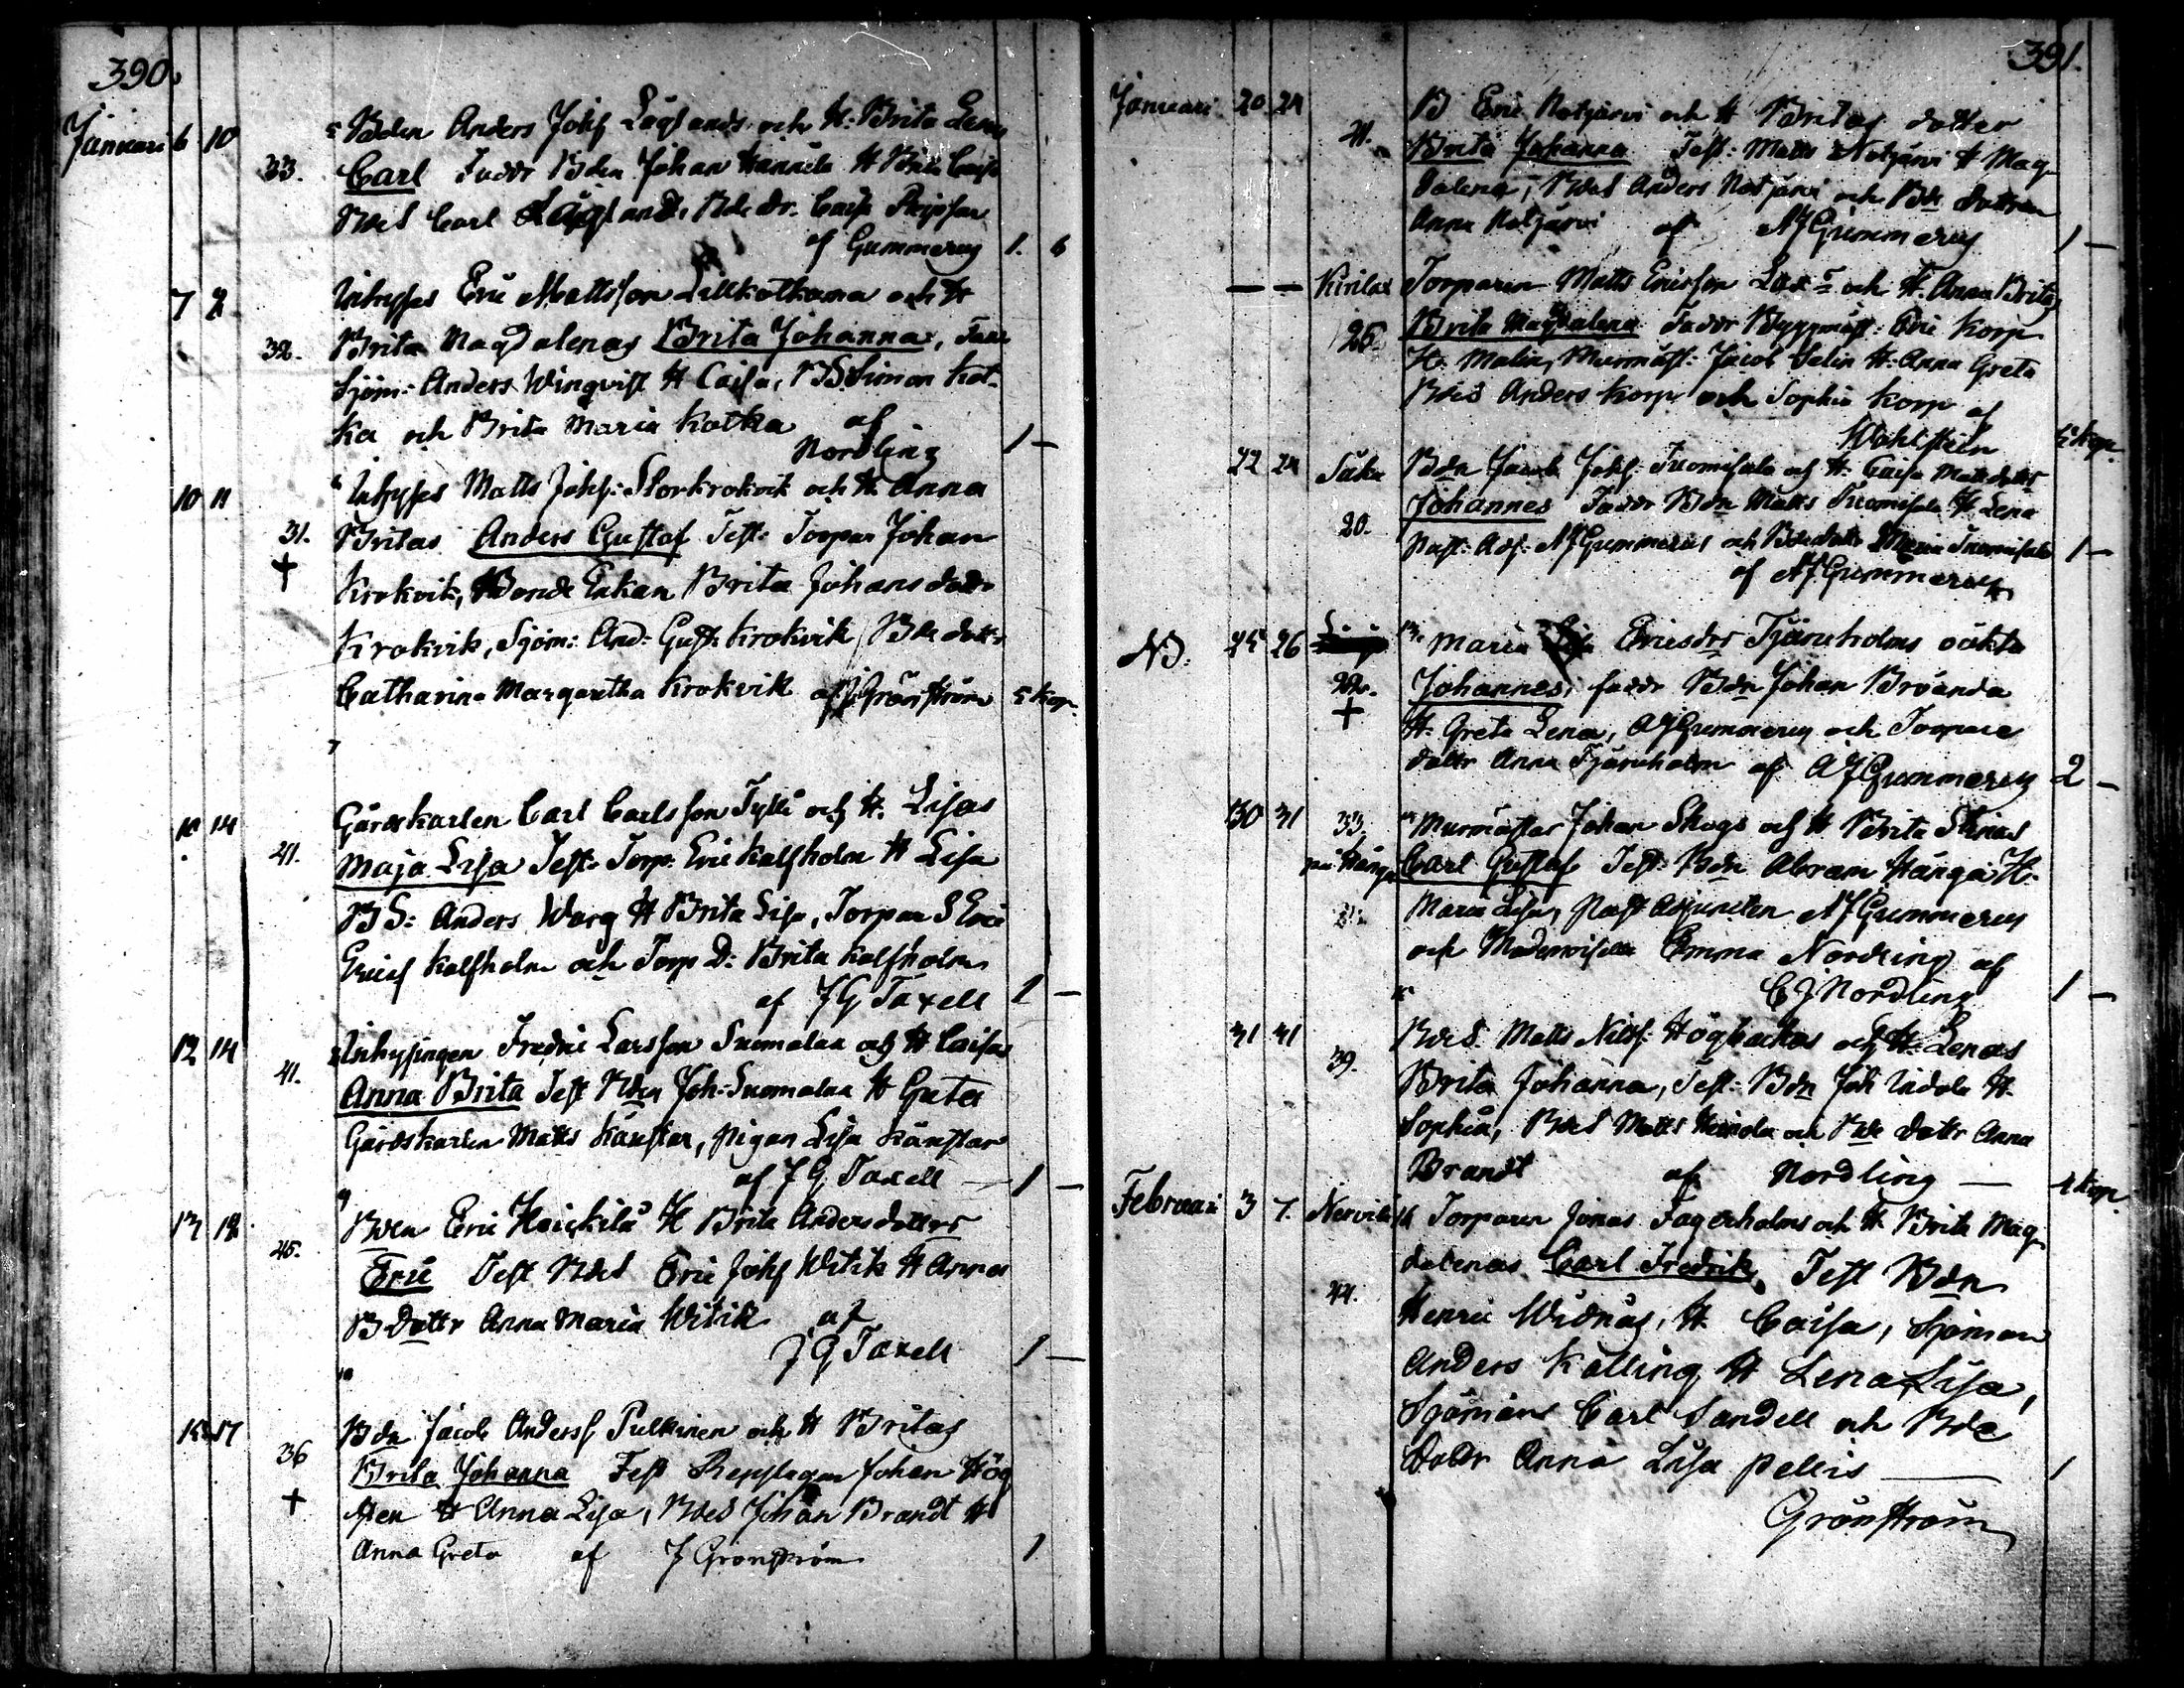 390.
Januari 6 10 Bden Anders Johss Låglands och H. Brita Lenas
33. Carl Faddr Bden Johan Hannila H Brita Caisa
BdeS Carl Lågland, Bde dr. Caisa
af Gummerus 1. 6
7 Inhyses Eric Mattsson Lillkotkana och H
32. Brita Magdalenas Brita Johanna,
Sjöm: Anders Winqvist H Caisa, BdS Simon Kot-
ka och Brita Maria Kotka af
Nordling 1 —
10 11 Inhyses Matts Johss: Storkrokvik och H Anna
31. Britas Anders Gustaf Test: Torpar Johan
+ Krokvik, Bonde Enkan Brita Johans dottr
Krokvik, Sjöm: And: Gust: Krokvik, Bde dottr
Catharina Margaretha Krokvik af J Grönström 5 kop.
10 14 Gårdskarlen Carl Carlsson Tylli och H. Lisas
41. Maja Lisa Test: Torp: Eric Kalfholm H Lisa
BdS: Anders Warg H Brita Lisa, Torpare S Eric
Ericss Kalfholm och Torp D: Brita Kalfholm
af J G Taxell 1 —
12 14 Inhysingen Fredric Larsson Suomalaa och H Caisas
41. Anna Brita Test Bden Joh: Suomalaa H Greta
Gårdskarlen Matts Känstar, Pigan Lisa Känstar
af J G Taxell — 1 —
Bden Eric Heickilä H Brita Andersdotters
45. Eric Test BdeS Eric Johss Witik H Anna
B dottr Anna Maria Witik af
J G Taxell 1 —
15 17 Bdn Jacob Anderss Pulkinen och H Britas
36 Brita Johanna Test Repslagar Johan Hög
+ sten H Anna Lisa, BdeS Johan Brandt H
Anna Greta af J Grönström 1
391.
Januari 20 24 B Eric Notjärvi och H Britas dotter
Brita Johanna Test: Matts Notjärvi H Mag
dalena, BdeS Anders Notjärvi och Bde dottren
Anna Notjärvi af AJ Gummerus 1 —
— — Kirilax Torparen Matts Ericsson Lax och H. Anna Britas
25. Brita Magdalena Faddr Byggmäst: Eric Korp
H. Malin, Murmäst: Jacob Selin H. Anna Greta
BdeS Anders Korp och Sophia Korp af
Wahlsten kop.
22 24 Bdn Jacob Johss: Tuomisala och H. Caisa Mattsdotters
20. Johannes Faddr Bdn Matts Tuomisala H Lena
Past: Adj: AJ Gummerus och Bde dottr Maria Tuomisala 1 —
af AJ Gummerus
NB. 25 26 Maria Ericsdrs Tjäruholms oäkta
22. Johannes, faddr Bdn Johan Brända
+ H. Greta Lena, AJ Gummerus och Torpare
dottr Anna Tjäruholm af AJ Gummerus 2 —
30 31 33. Murmästar Johan Skogs och H Brita Stinas
Carl Gustaf Test: Bdn Abram Hänga H.
Maria Lisa, Past Adjuncten AJ Gummerus
och Mademoiselle Emma Nordling af
C J Nordling 1 —
31 31 BdeS Matts Nilss: Högbackas och H. Lenas
39. Brita Johanna, Test: Bdn Joh Uidola H.
Sophia, BdeS Matts och Bde dottr Anna
Brandt af Nordling — kop.
Februari 3 7. Torparen Jonas Fagerholms och H Brita Mag
dalenas Carl Fredrik, Test Bdn
44. Henric Widnäs, H. Caisa, Sjöman
Anders Källing H Lena Lisa,
Sjöman Carl Sandell och Bde
Dottr Anna Lisa Pellis — 1
Grönström